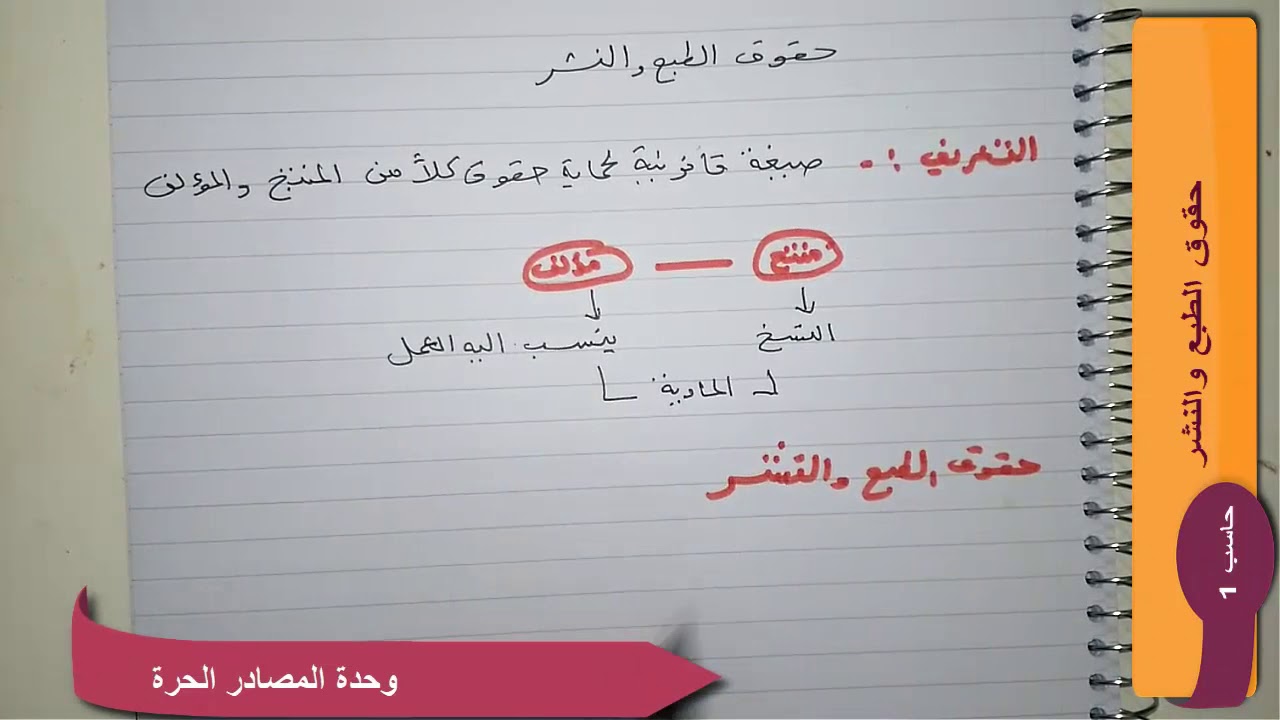 حقوق الطبع والنشر
التعريف :- صيغة قانونية لحماية حقوق كلاً من المنتج والمؤلف
منتج — مؤلف
النسخ ينسب اليه العمل
المادية
حقوق الطبع والنشر
حقوق الطبع والنشر
حاسب 1
وحدة المصادر الحرة